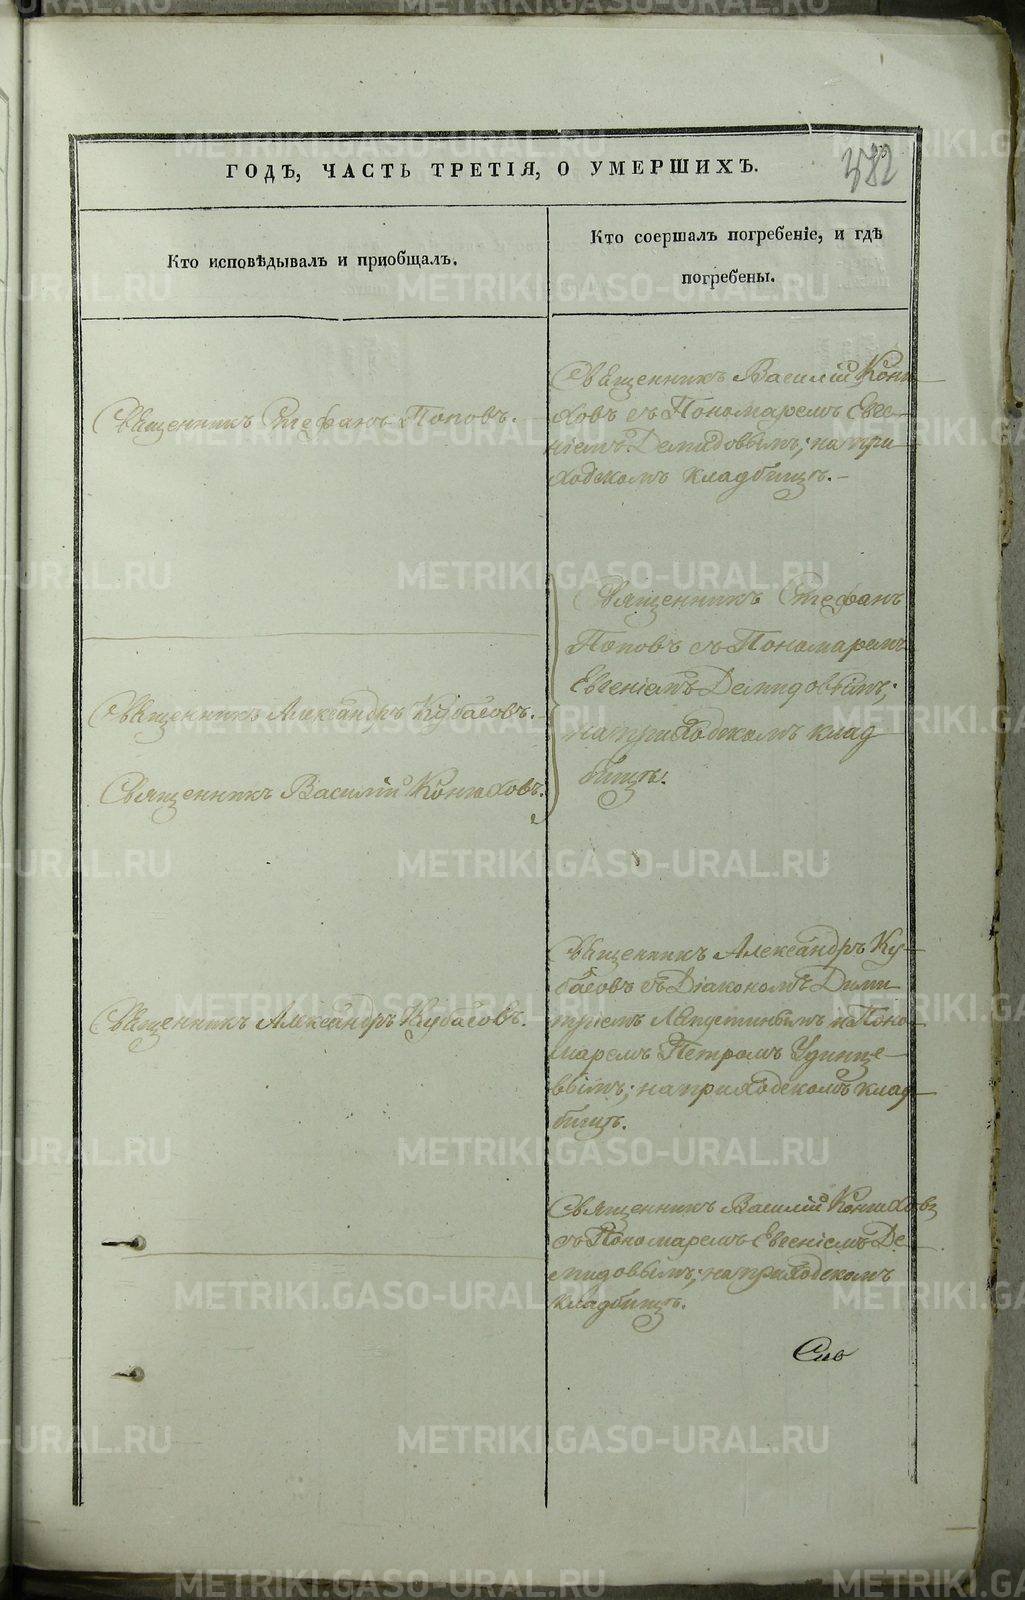 ГОДЪ, ЧАСТЬ ТРЕТІЯ, О УМЕРШИХЪ.
482
Кто исповѣдывалъ и приобщалъ.
Кто соершалъ погребеніе, и гдѣ
погребены.
Священникъ Стефанъ Поповъ.
Священникъ Василій Коню-
ховъ съ Пономаремъ Евге-
ніемъ Демидовымъ; на при-
ходскомъ кладбищѣ.
Священникъ Александръ Кубасовъ.
Священникъ Василій Конюховъ.
Священникъ Стефанъ
Поповъ съ Пономаремъ
Евгеніемъ Демидовымъ;
на приходскомъ клад
бищѣ.
Священникъ Александръ Кубасовъ.
Священникъ Александръ Ку-
басовъ съ Діакономъ Дими
тріемъ Поно-
маремъ Петромъ Удинце-
вымъ; на приходскомъ клад-
бищѣ.
Священникъ Василій Конюховъ
съ Пономаремъ Евгеніемъ Де-
мидовымъ; на приходскомъ
кладбищѣ.
METRIKI.GASO-URAL.RU